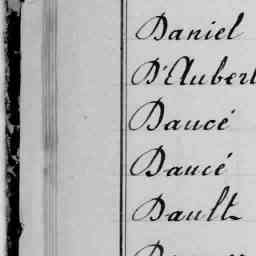 Daniel
D'Aubert
Daucé
Daucé
Dault